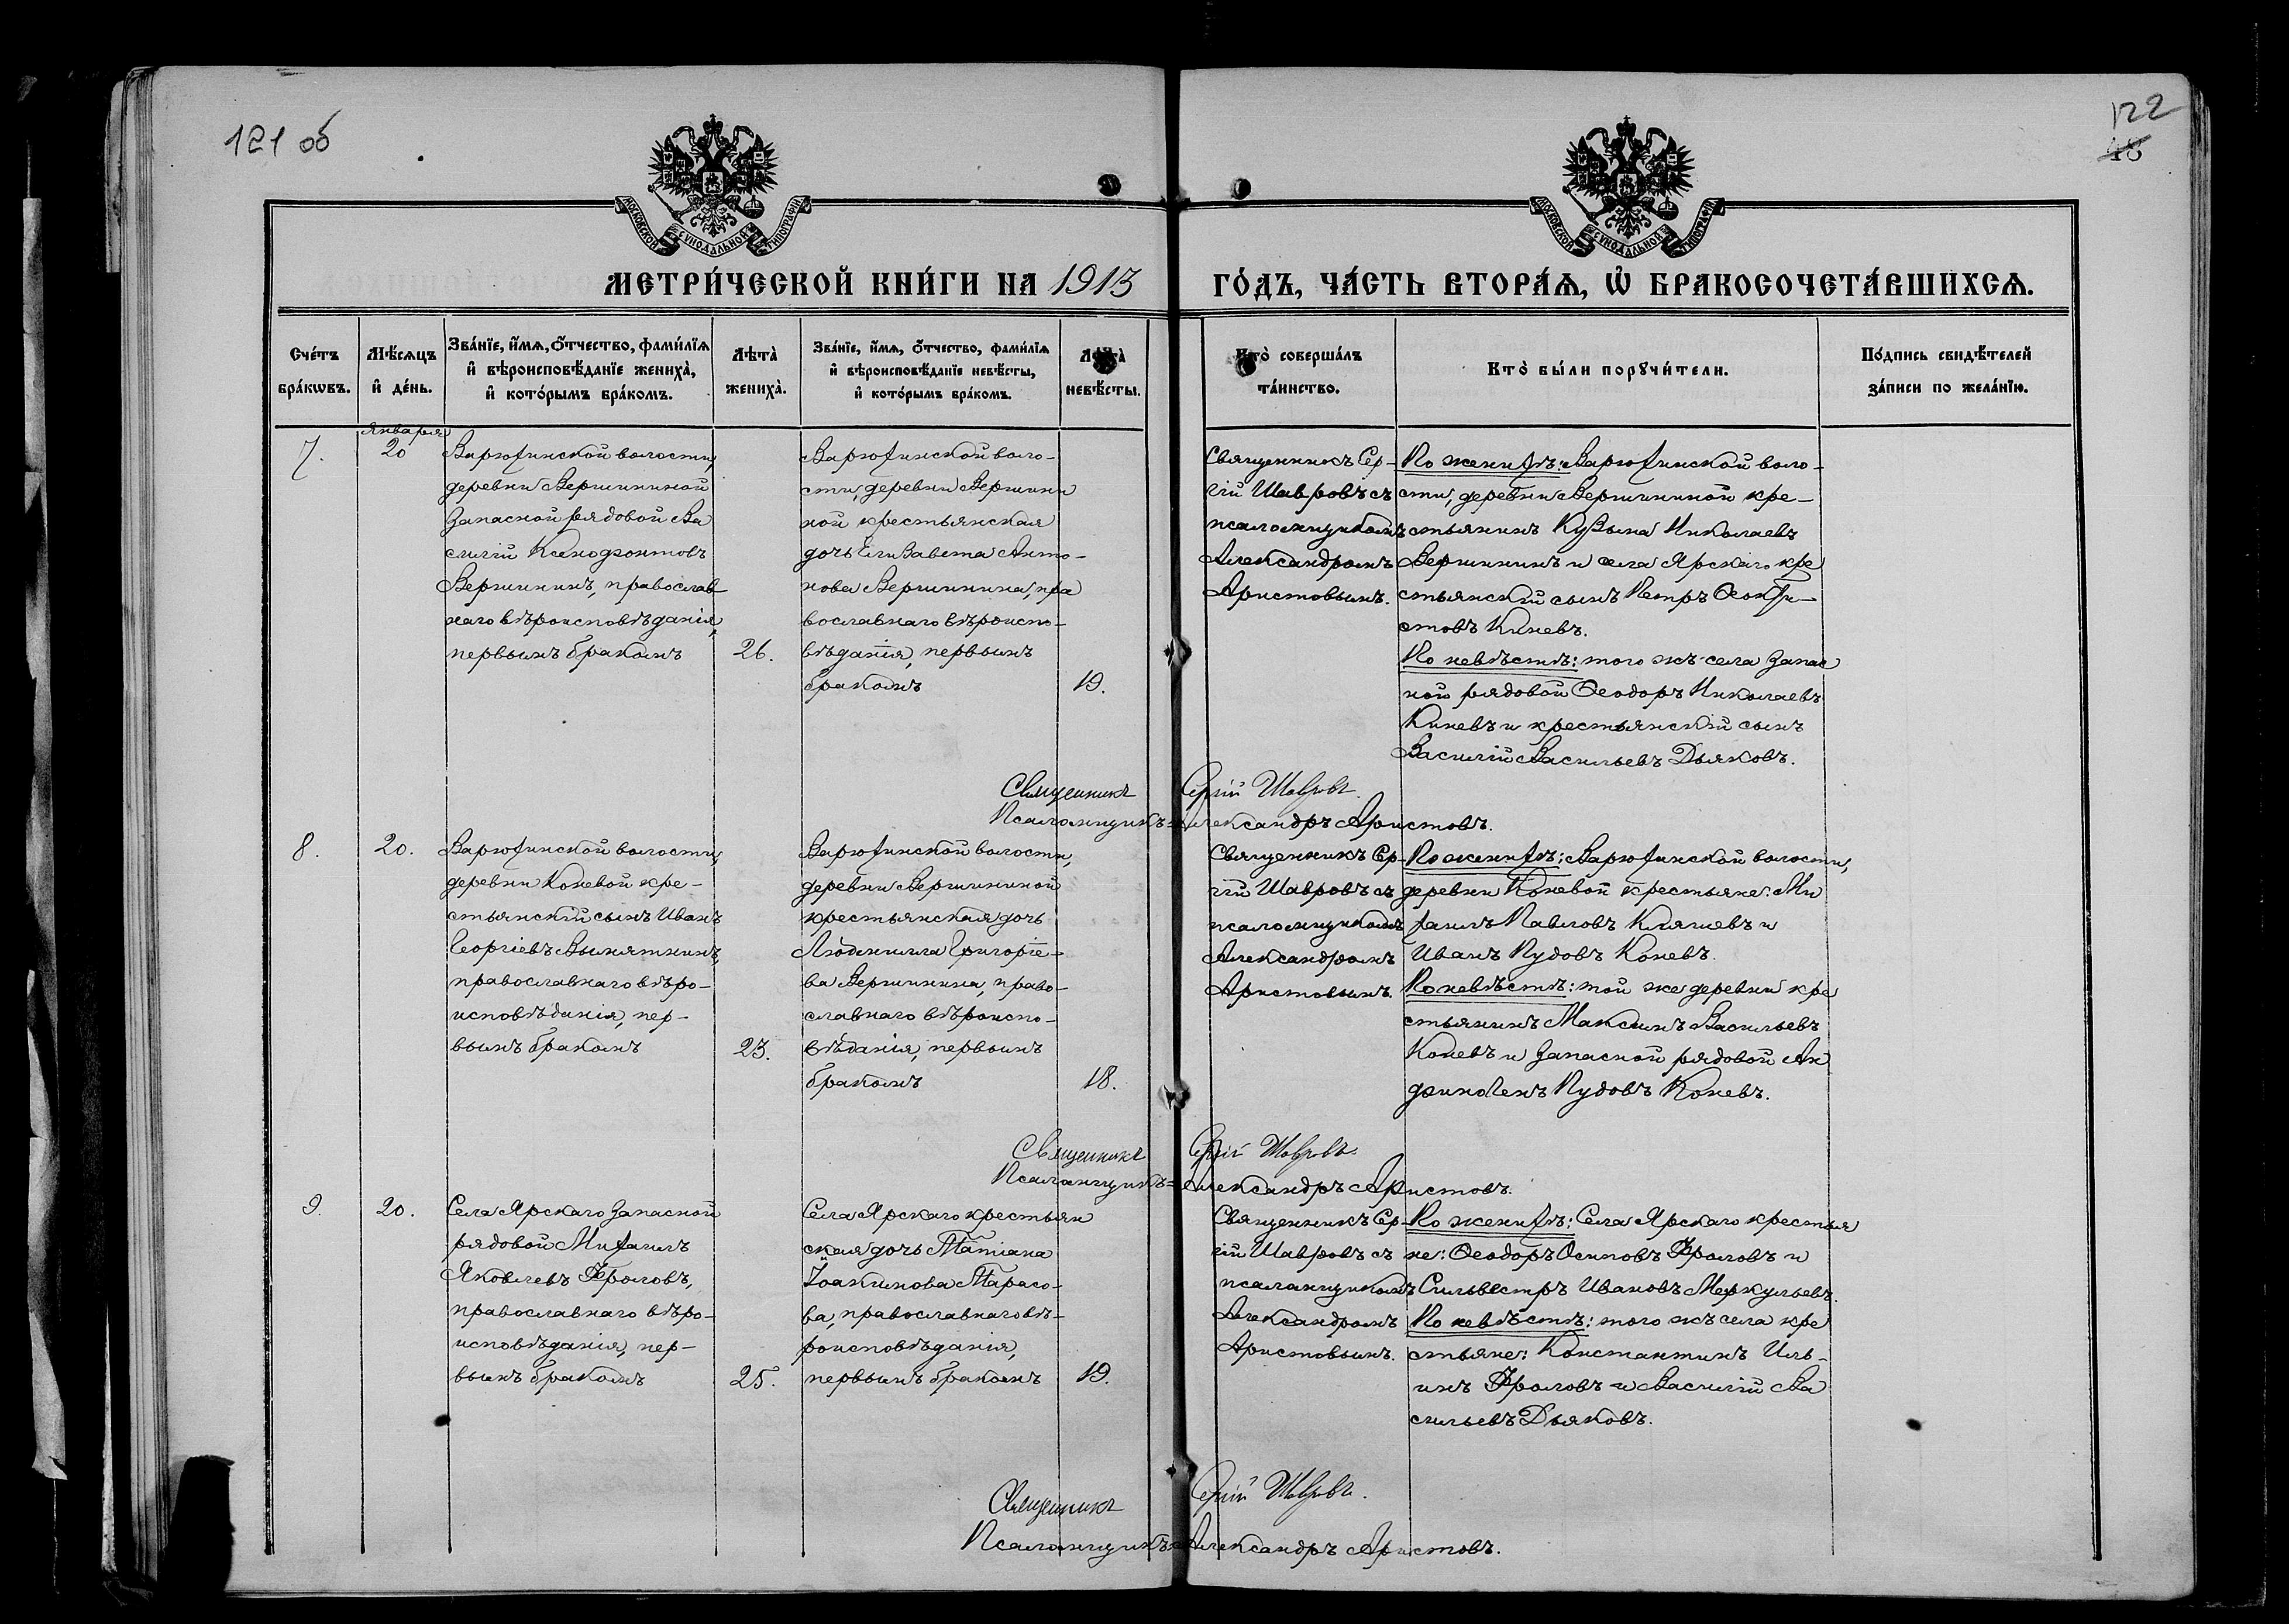 121 об
122
48
МОСКОВСКОЙ СУНОДАЛЬНОЙ ТИПОГРАФІИ
МОСКОВСКОЙ СУНОДАЛЬНОЙ ТИПОГРАФІИ
МЕТРИ́ЧЕСКОЙ КНИ́ГИ НА 1913
ГО́ДЪ, ЧА́СТЬ ВТОРА́Ѧ, Ѽ БРАКОСОЧЕТА́ВШИХСѦ.
Сче́тъ
бра́кѡвъ.
Мѣ́сѧцъ
и҆ де́нь.
Зва́нїе, и҆́мѧ, ѻ҆́тчество, фами́лїѧ
и҆ вѣроисповѣ́данїе жениха̀,
и҆ кото́рымъ бра́комъ.
Лѣ́та
жениха̀.
Зва́нїе, и҆́мѧ, ѻ҆́тчество, фами́лїѧ
и҆ вѣроисповѣ́данїе невѣ́сты,
и҆ кото́рымъ бра́комъ.
Лѣ́та
невѣ́сты.
Кто̀ соверша́лъ
та́инство.
Кто̀ бы́ли порꙋчи́тели.
По́дпись свидѣ́телей
за́писи по жела́нїю.
7.
Января
20
Варюхинской волости,
деревни Вершининой
запасной рядовой Ва
силій Ксенофонтовъ
Вершининъ, православ
наго вѣроисповѣданія,
первымъ бракомъ
26.
Варюхинской воло-
сти, деревни Вершини
ной крестьянская
дочь Елизавета Анто-
нова Вершинина, пра
вославнаго вѣроиспо-
вѣданія, первымъ
бракомъ
19.
Священникъ Сер-
гій Шавровъ съ
псаломщикомъ
Александромъ
Аристовымъ.
По женихѣ: Варюхинской воло-
сти, деревни Вершининой кре-
стьянинъ Кузьма Николаевъ
Вершининъ и села Ярскаго кре
стьянскій сынъ Петръ Ѳеокти-
стовъ Киневъ.
По невѣстѣ: того жъ села запас
ной рядовой Ѳеодоръ Николаевъ
Киневъ и крестьянскій сынъ
Василій Васильевъ Дьяковъ.
Священникъ Сергій Шавровъ.
Псаломщикъ Александръ Аристовъ.
8.
20.
Варюхинской волости,
деревни Коневой кре-
стьянскій сынъ Иванъ
Георгіевъ Вымятнинъ,
православнаго вѣро-
исповѣданія, пер-
вымъ бракомъ
23.
Варюхинской волости,
деревни Вершининой
крестьянская дочь
Людмилла Григоріе-
ва Вершинина, право-
славнаго вѣроиспо-
вѣданія, первымъ
бракомъ
18.
Священникъ Сер-
гій Шавровъ съ
псаломщикомъ
Александромъ
Аристовымъ.
По женихѣ: Варюхинской волости,
деревни Коневой крестьяне: Ми
хаилъ Павловъ и
Иванъ Пудовъ Коневъ.
По невѣстѣ: той же деревни кре
стьянинъ Максимъ Васильевъ
Коневъ и запасной рядовой Ан
финогенъ Пудовъ Коневъ.
Священникъ Сергій Шавровъ.
Псаломщикъ Александръ Аристовъ.
9.
20.
Села Ярскаго запасной
рядовой Михаилъ
Яковлевъ Фроловъ,
православнаго вѣро-
исповѣданія, пер-
вымъ бракомъ
25.
Села Ярскаго крестьян
ская дочь Татіана
Іоакимова Тарасо-
ва, православнаго вѣ-
роисповѣданія,
первымъ бракомъ
19.
Священникъ Сер-
гій Шавровъ съ
псаломщикомъ
Александромъ
Аристовымъ.
По женихѣ: Села Ярскаго крестья
не: Ѳеодоръ Осиповъ Фроловъ и
Сильвестръ Ивановъ Меркульевъ.
По невѣстѣ: того жъ села кре
стьяне: Константинъ Иль-
инъ Фроловъ и Василій Ва
сильевъ Дьяковъ.
Священникъ Сергій Шавровъ.
Псаломщикъ Александръ Аристовъ.